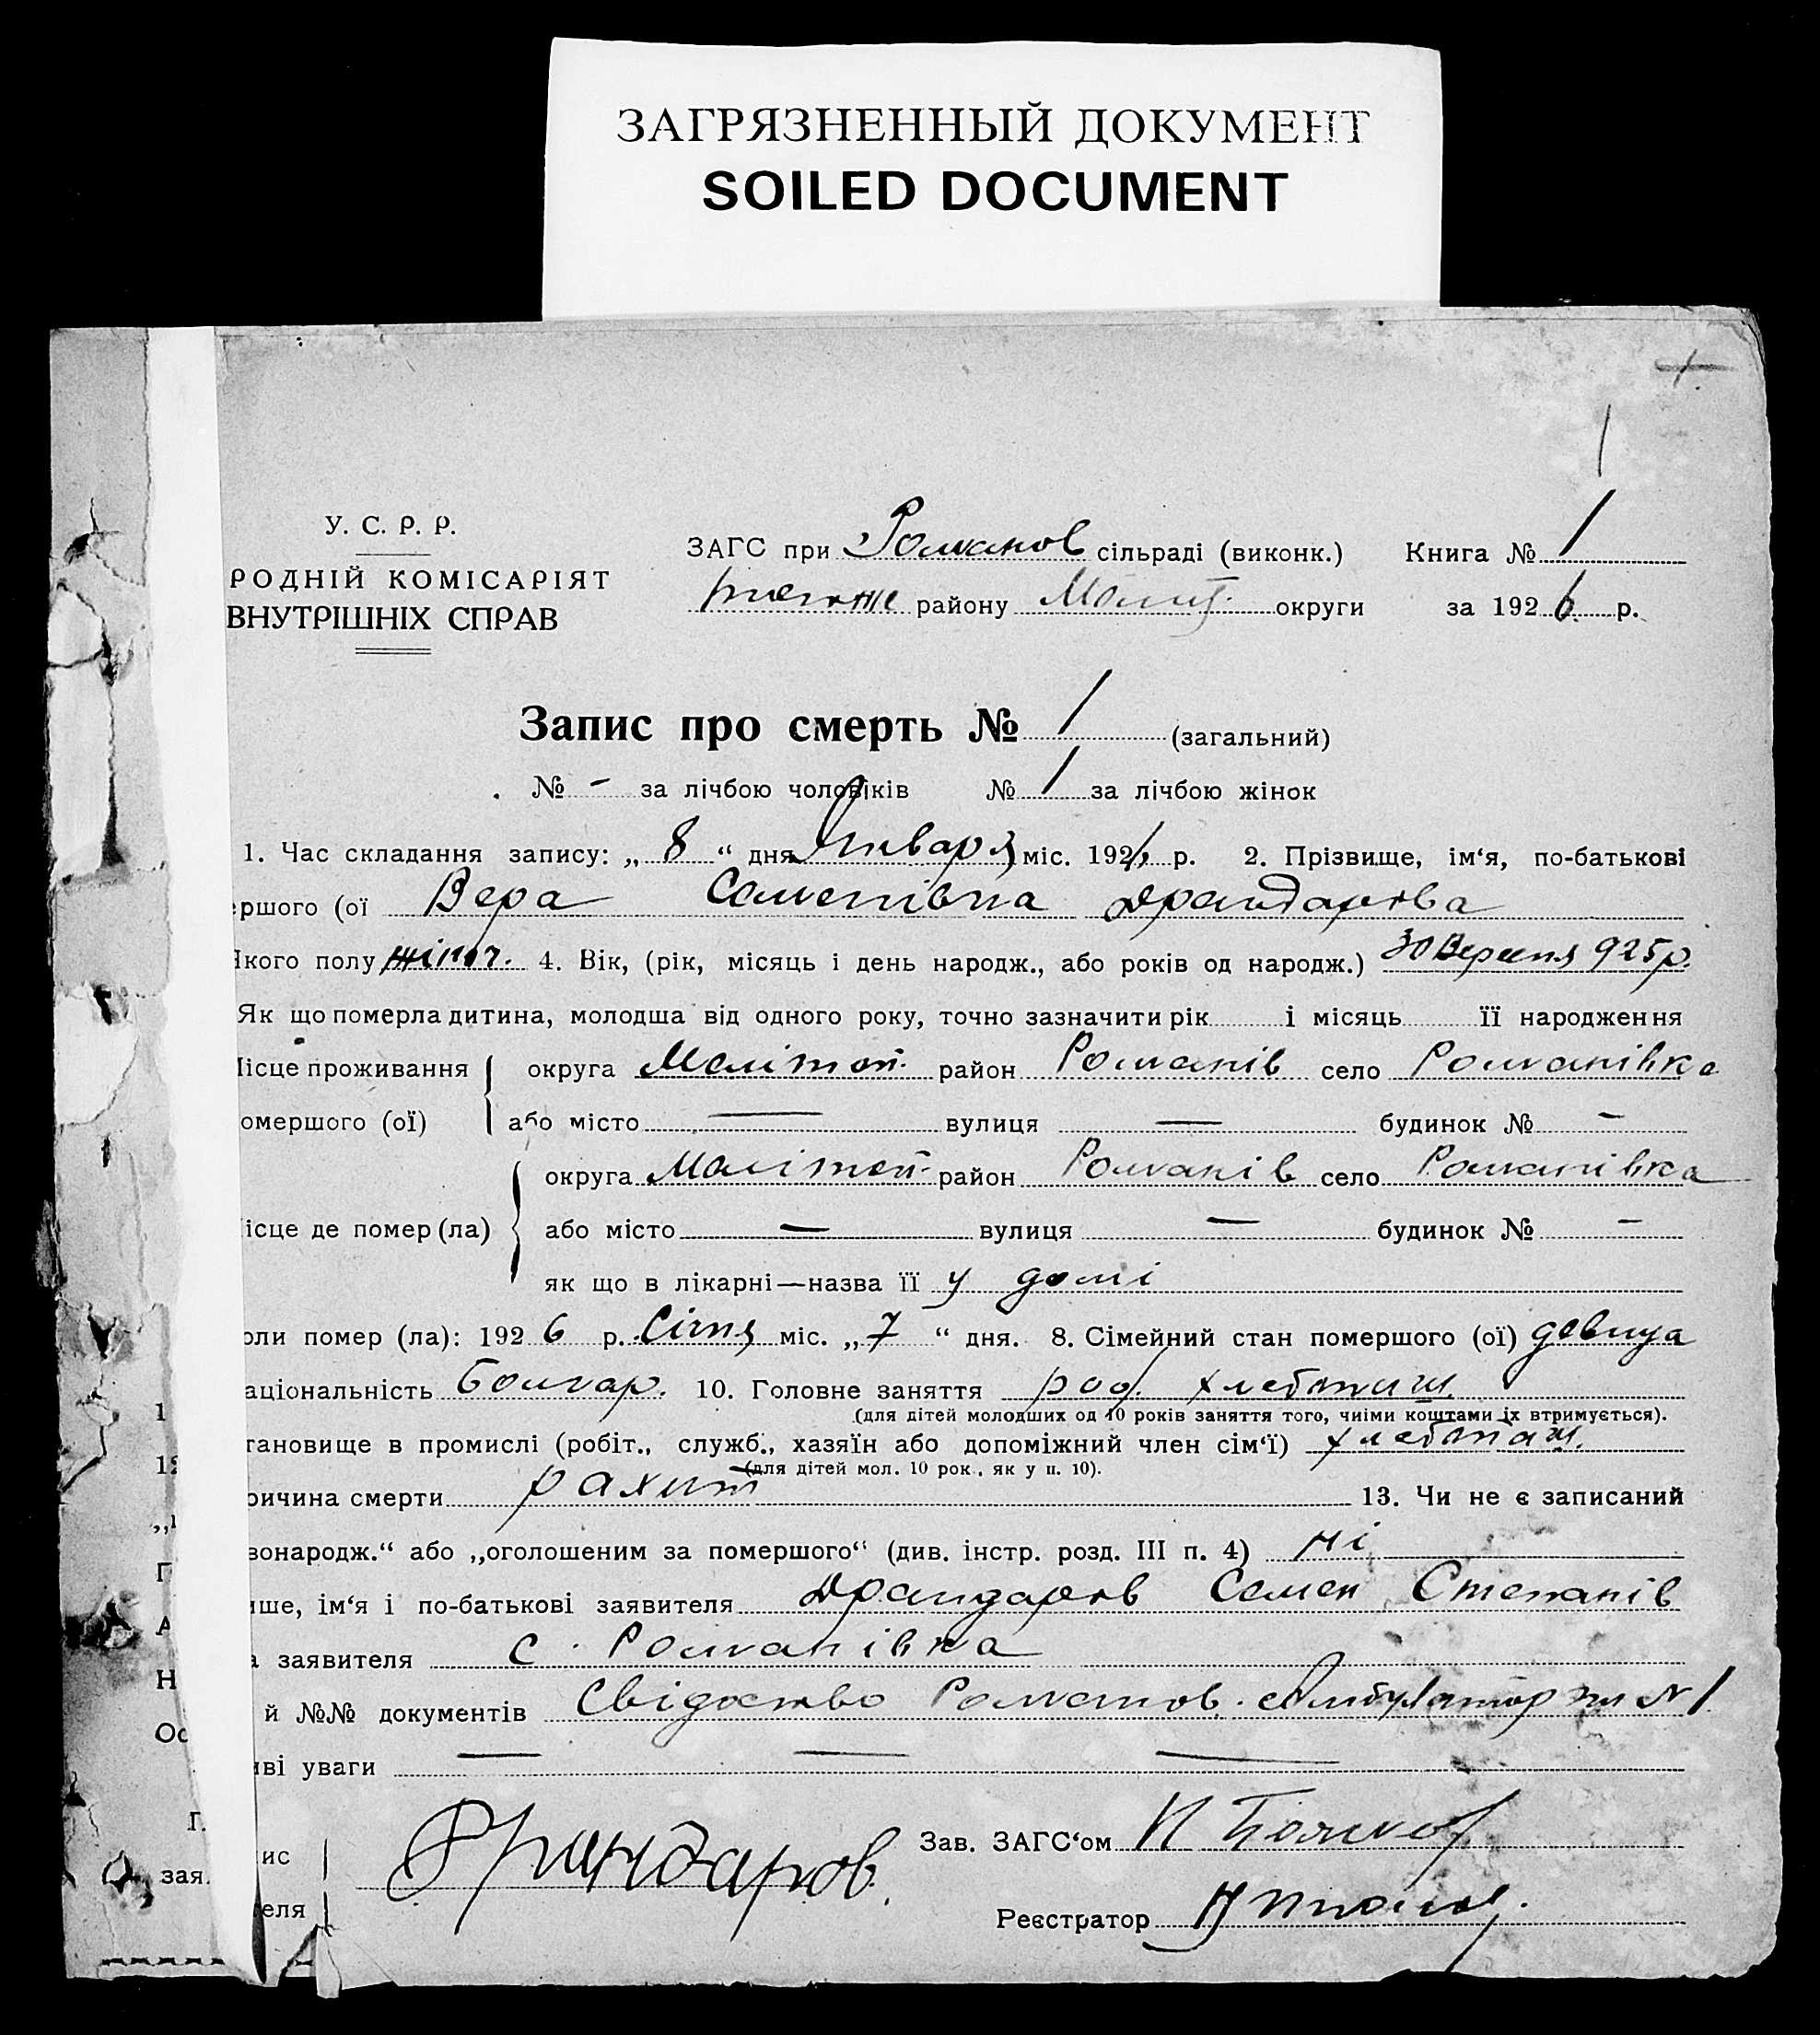 ЗАГРЯЗНЕННЫЙ ДОКУМЕНТ
SOILED DOCUMENT
1
У. С. Р. Р.
РОДНІЙ КОМІСАРІЯТ
ВНУТРІШНІХ СПРАВ
ЗАГС при Романов сільраді (виконк.) Книга № 1
району округи за 1926 р.
Запис про смерть № 1 (загальний)
№ - за лічбою чоловіків № 1 за лічбою жінок
1. Час складання запису: „ 8 “ дня Января міс. 1926 р. 2. Прізвище, ім‘я, по-батькові
ершого (ої Вера Семенівна Драндарова
Якого полу жіноч. 4. Вік, (рік, місяць і день народж., або років од народж.) 30 Вересня 925 р.
Як що померла дитина, молодша від одного року, точно зазначити рік і місяць її народження
Місце проживання округа Меліточ. район Романів село Романівка
омершого (ої) або місто — вулиця — будинок № -
округа Меліточ. район Романів село Романівка
ісце де помер (ла) або місто — вулиця — будинок № -
як що в лікарні—назва її у домі
оли помер (ла): 1926 р. Січня міс. „ 7 “ дня. 8. Сімейний стан помершого (ої) девица
аціональність Болгар. 10. Головне заняття хлебопаш.
(для дітей молодших од 10 років заняття того, чиіми коштами їх втримується).
тановище в промислі (робіт., служб., хазяїн або допоміжний член сім‘ї) хлебопаш.
(для дітей мол. 10 рок., як у п. 10).
ричина смерти рахит 13. Чи не є записаний
вонародж.“ або „оголошеним за помершого“ (див. інстр. розд. III п. 4) ні
ище, ім‘я і по-батькові заявителя Драндаров Семен Степанів
а заявителя с. Романівка
й №№ документів Свідоство Романов. Амбулатор № 1
иві уваги — — —
ис
еля
Драндаров.
Зав. ЗАГС‘ом
Реєстратор